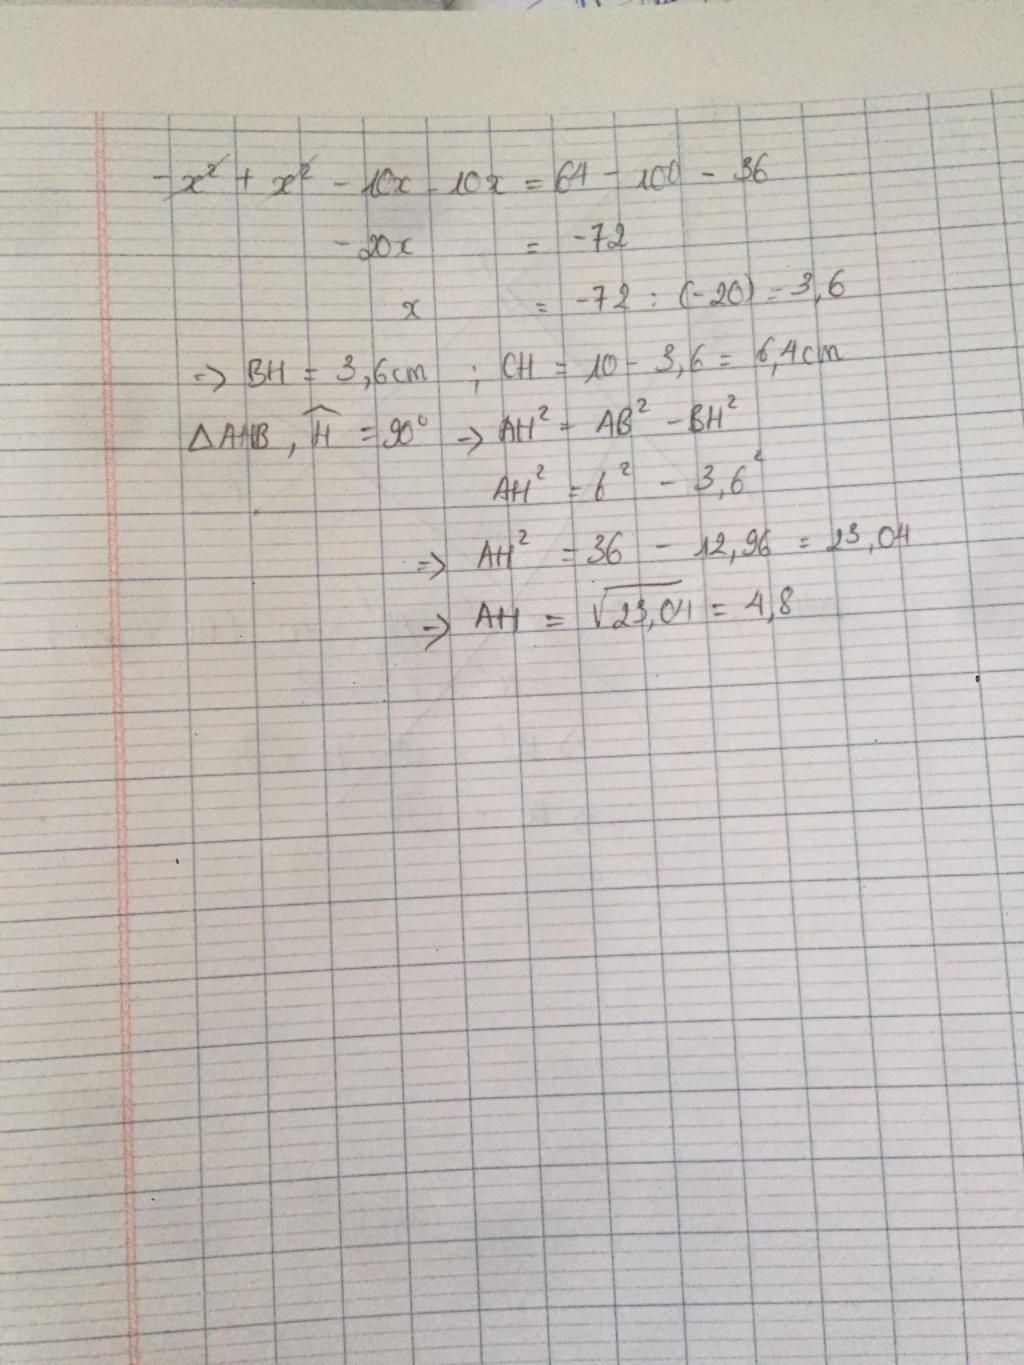 - x² + x² - 10x - 10x = 64 - 100 - 36
- 20x = -72
x = -72 : (-20) = 3,6
=> BH = 3,6cm ; CH = 10 - 3,6 = 6,4cm
ΔAHB, Ĥ = 90° -> AH² = AB² - BH²
AH² = 6² - 3,6²
=> AH² = 36 - 12,96 = 23,04
-> AH = √23,04 = 4,8